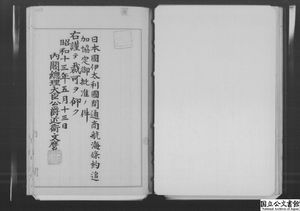 日本國伊太利國間通商航海條約追
加協定御批准ノ件
右謹テ裁可ヲ仰ク
昭和十三年五月十三日
內閣總理大臣公爵近衞文麿
国立公文書館
National Archives of Japan